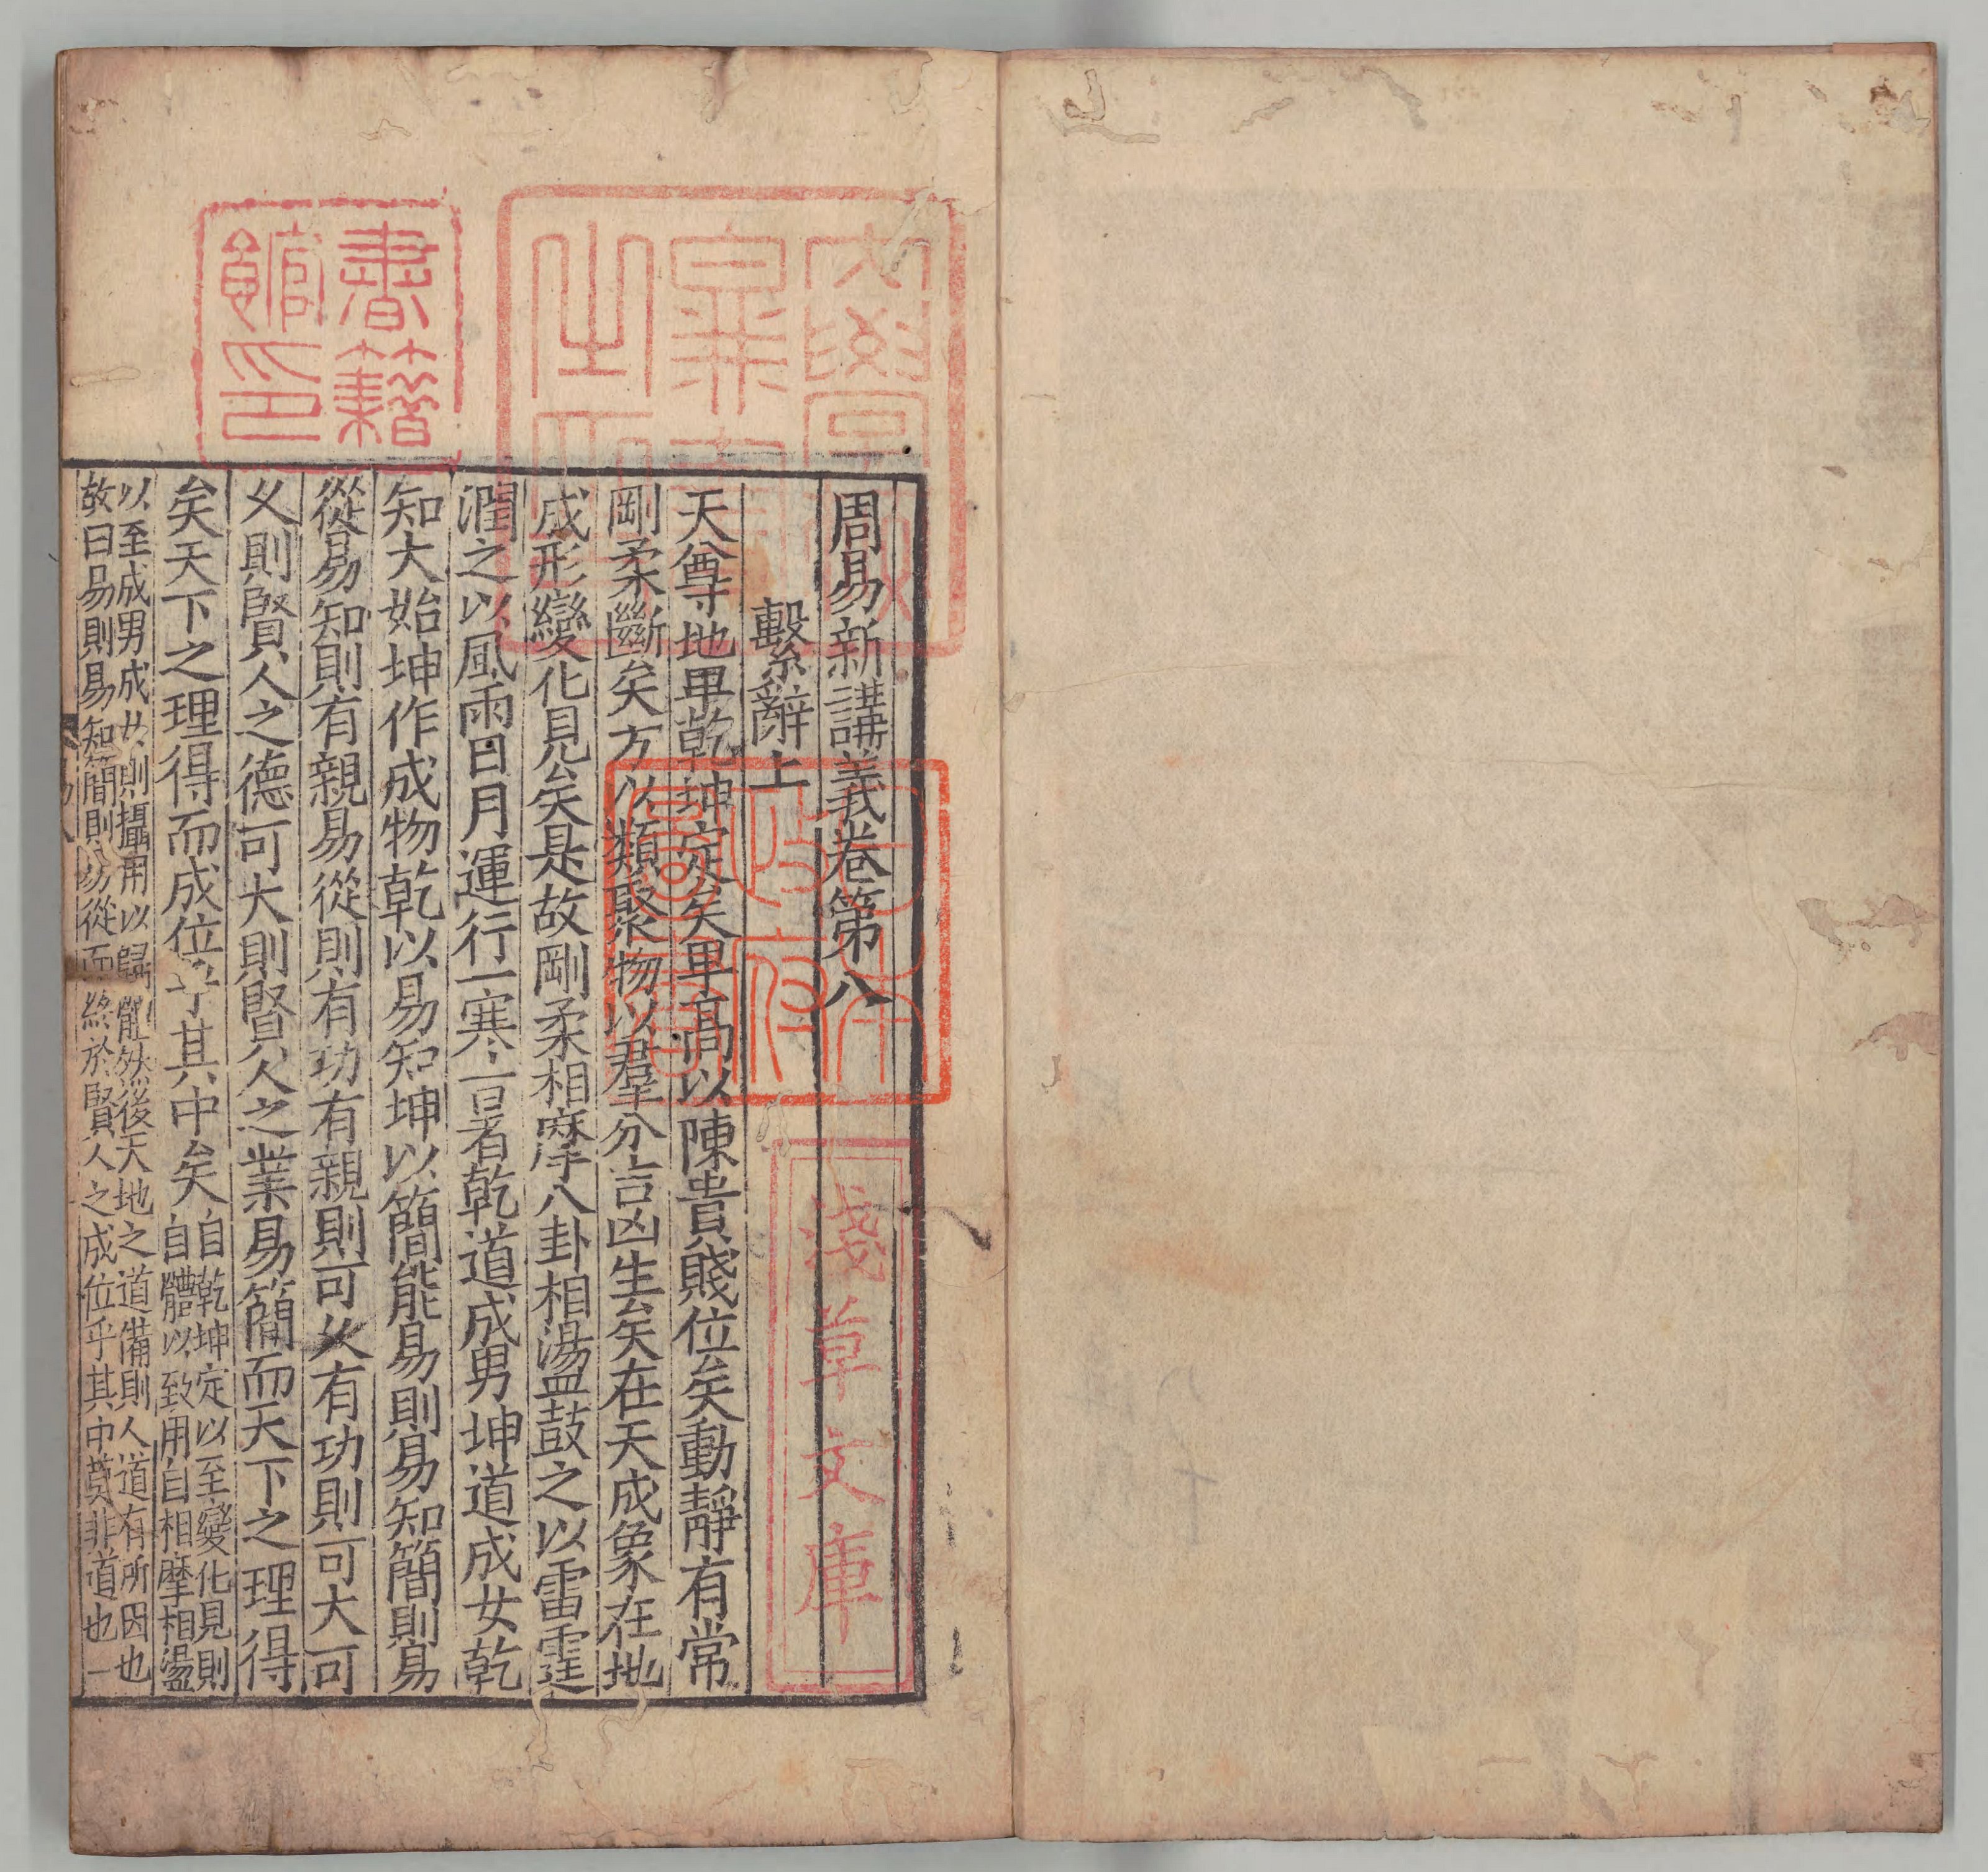 周易新講義卷第八
繫辭上
天尊地卑乾坤定矣卑高以陳貴賤位矣動靜有常
剛柔斷矣方以類聚物以羣分吉凶生矣在天成象在地
成形變化見矣是故剛柔相摩八卦相盪鼓之以雷霆
潤之以風雨日月運行一寒一暑乾道成男坤道成女乾
知大始坤作成物乾以易知坤以簡能易則易知簡則易
從易知則有親易從則有功有親則可久有功則可大可
久則賢人之德可大則賢人之業易簡而天下之理得
矣天下之理得而成位乎其中矣
自乾坤定以至變化見則
自體以致用自相摩相盪
以至成男成女則攝用以歸體然後天地之道備則人道有所因也
故曰易則易知簡則易從而終於賢人之成位乎其中莫非道也一
書籍
館印
淺草文庫